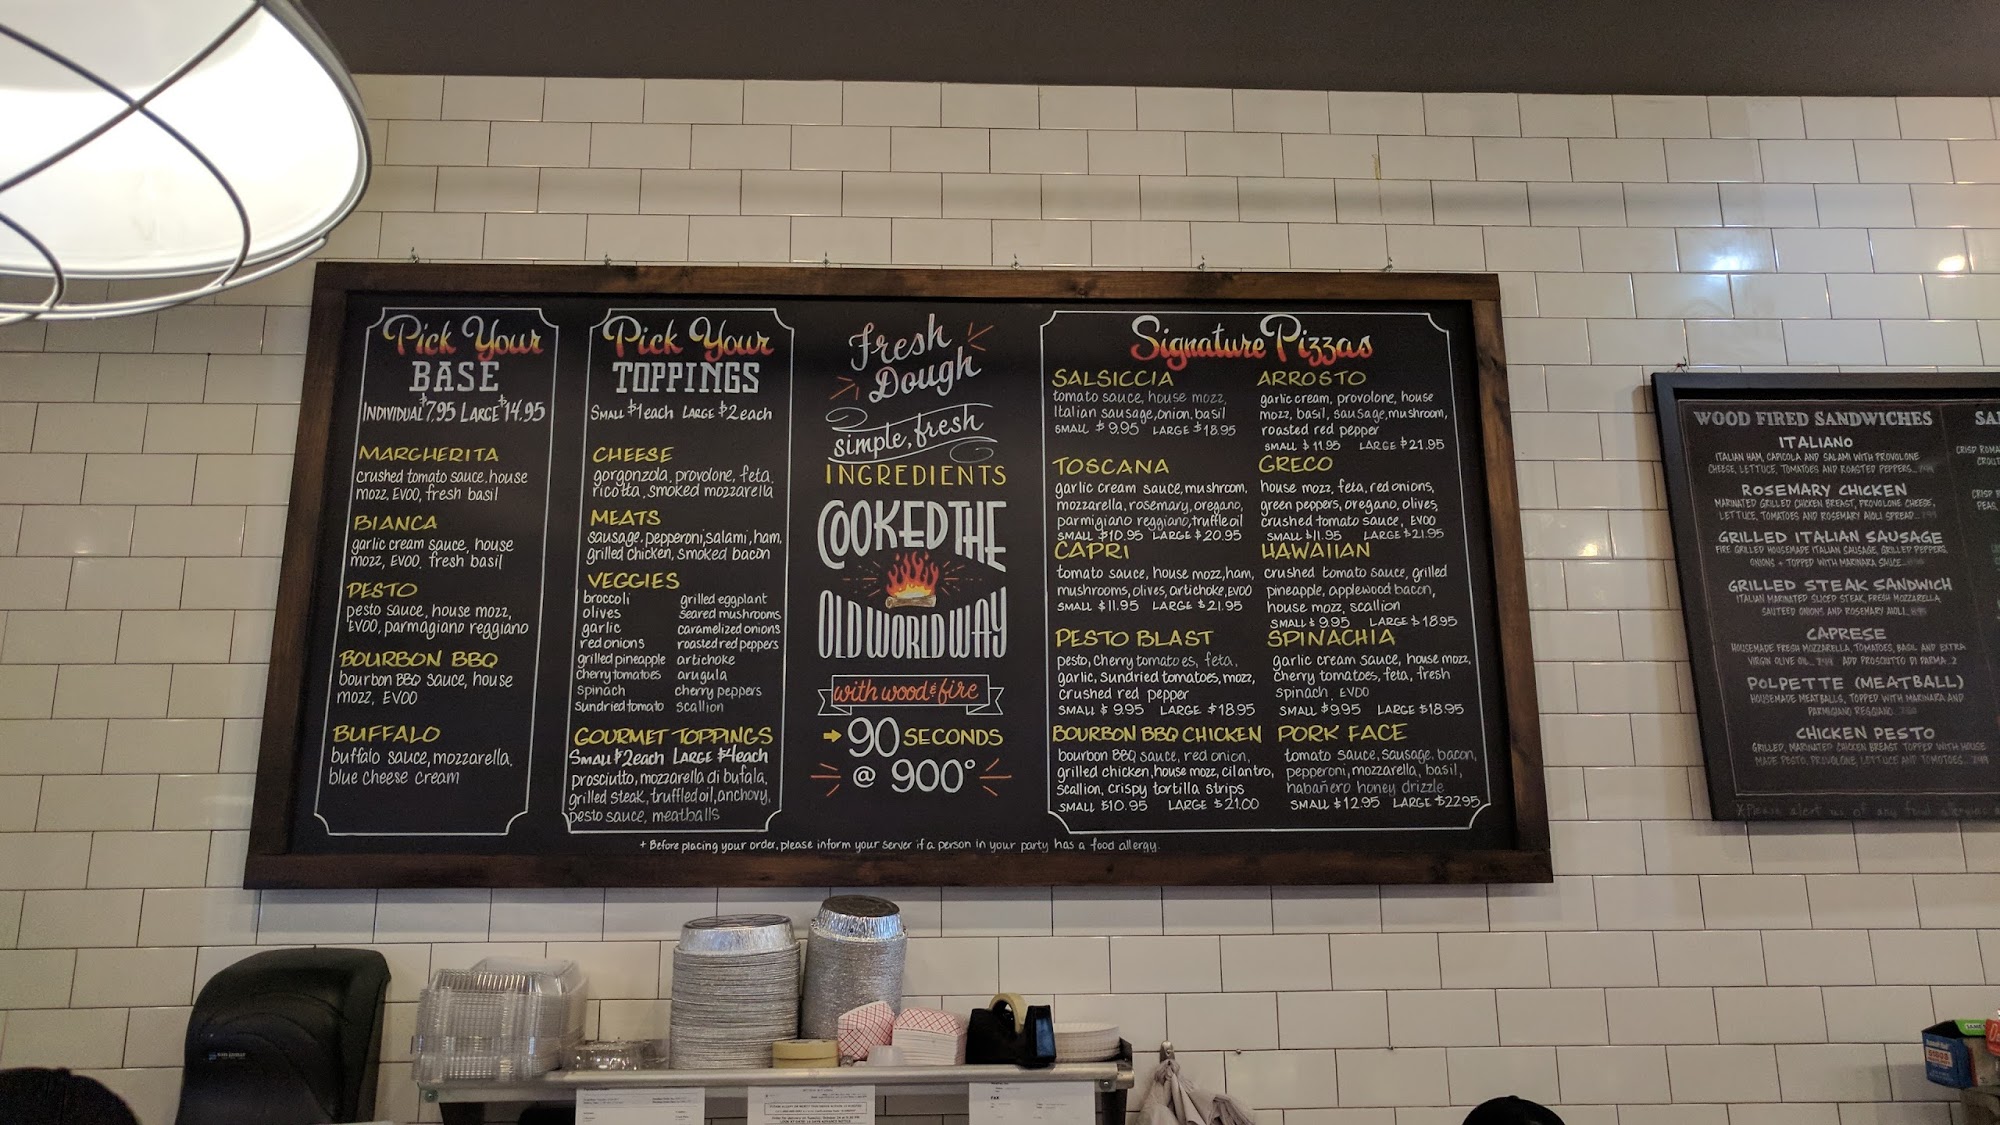 Pick Your
BASE
INDIVIDUAL $7.95 LARGE $14.95
MARGHERITA
crushed tomato sauce, house
mozz, EVOO, fresh basil
BIANCA
garlic cream sauce, house
mozz, EVOO, fresh basil
PESTO
pesto sauce, house mozz,
EVOO, parmagiano reggiano
BOURBON BBQ
bourbon BBQ sauce, house
mozz, EVOO
BUFFALO
buffalo sauce, mozzarella,
blue cheese cream
Pick Your
TOPPINGS
SMALL $1 each LARGE $2 each
CHEESE
gorgonzola, provolone, feta,
ricotta, smoked mozzarella
MEATS
sausage, pepperoni, salami, ham,
grilled chicken, smoked bacon
VEGGIES
broccoli grilled eggplant
olives seared mushrooms
garlic caramelized onions
red onions roasted red peppers
grilled pineapple artichoke
cherry tomatoes arugula
spinach cherry peppers
sundried tomato scallion
GOURMET TOPPINGS
SMALL $2 each LARGE $4 each
prosciutto, mozzarella di bufala,
grilled steak, truffled oil, anchovy,
pesto sauce, meatballs
Fresh
Dough
simple, fresh
INGREDIENTS
COOKED THE
OLD WORLD WAY
with wood & fire
90 SECONDS
@ 900°
Signature Pizzas
SALSICCIA
tomato sauce, house mozz,
Italian sausage, onion, basil
SMALL $9.95 LARGE $18.95
TOSCANA
garlic cream sauce, mushroom,
mozzarella, rosemary, oregano,
parmigiano reggiano, truffle oil
SMALL $10.95 LARGE $20.95
CAPRI
tomato sauce, house mozz, ham,
mushrooms, olives, artichoke, EVOO
SMALL $11.95 LARGE $21.95
PESTO BLAST
pesto, cherry tomatoes, feta,
garlic, sundried tomatoes, mozz,
crushed red pepper
SMALL $9.95 LARGE $18.95
BOURBON BBQ CHICKEN
bourbon BBQ sauce, red onion,
grilled chicken, house mozz, cilantro,
scallion, crispy tortilla strips
SMALL $10.95 LARGE $21.00
ARROSTO
garlic cream, provolone, house
mozz, basil, sausage, mushroom,
roasted red pepper
SMALL $11.95 LARGE $21.95
GRECO
house mozz, feta, red onions,
green peppers, oregano, olives,
crushed tomato sauce, EVOO
SMALL $11.95 LARGE $21.95
HAWAIIAN
crushed tomato sauce, grilled
pineapple, applewood bacon,
house mozz, scallion
SMALL $9.95 LARGE $18.95
SPINACHIA
garlic cream sauce, house mozz,
cherry tomatoes, feta, fresh
spinach, EVOO
SMALL $9.95 LARGE $18.95
PORK FACE
tomato sauce, sausage, bacon,
pepperoni, mozzarella, basil,
habanero honey drizzle
SMALL $12.95 LARGE $22.95
+ Before placing your order, please inform your server if a person in your party has a food allergy.
WOOD FIRED SANDWICHES
ITALIANO
ITALIAN HAM, CAPICOLA AND SALAMI WITH PROVOLONE
CHEESE, LETTUCE, TOMATOES AND ROASTED PEPPERS...
ROSEMARY CHICKEN
MARINATED GRILLED CHICKEN BREAST, PROVOLONE CHEESE,
LETTUCE, TOMATOES AND ROSEMARY AIOLI SPREAD...
GRILLED ITALIAN SAUSAGE
FIRE GRILLED HOUSEMADE ITALIAN SAUSAGE, GRILLED PEPPERS,
ONIONS + TOPPED WITH MARINARA SAUCE...
GRILLED STEAK SANDWICH
ITALIAN MARINATED SLICED STEAK, FRESH MOZZARELLA,
SAUTEED ONIONS AND ROSEMARY AIOLI...
CAPRESE
HOUSEMADE FRESH MOZZARELLA, TOMATOES, BASIL AND EXTRA
VIRGIN OLIVE OIL... ADD PROSCIUTTO DI PARMA..2
POLPETTE (MEATBALL)
HOUSEMADE MEATBALLS, TOPPED WITH MARINARA AND
PARMIGIANO REGGIANO
CHICKEN PESTO
GRILLED, MARINATED CHICKEN BREAST TOPPED WITH HOUSE
MADE PESTO, PROVOLONE, LETTUCE AND TOMATOES...
*Please alert us of any food allergies